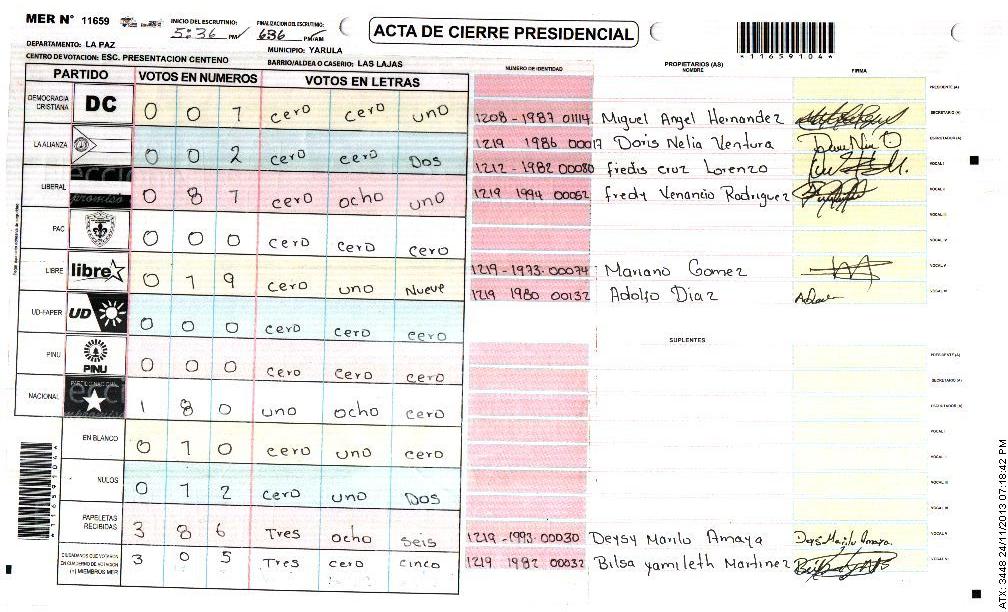 MER Nº 11659
INICIO DEL ESCRUTINIO: 5:36 PM
FINALIZACION DEL ESCRUTINIO: 636 PM/AM
ACTA DE CIERRE PRESIDENCIAL
*116591044*
DEPARTAMENTO: LA PAZ
MUNICIPIO: YARULA
CENTRO DE VOTACION: ESC. PRESENTACION CENTENO
BARRIO/ALDEA O CASERIO: LAS LAJAS
PARTIDO VOTOS EN NUMEROS VOTOS EN LETRAS
DEMOCRACIA CRISTIANA DC 0 0 1 cero cero uno
LA ALIANZA 0 0 2 cero cero Dos
LIBERAL 0 8 1 cero ocho uno
PAC 0 0 0 cero cero cero
LIBRE libre 0 1 9 cero uno Nueve
UD-FAPER UD 0 0 0 cero cero cero
PINU PINU 0 0 0 cero cero cero
NACIONAL 1 8 0 uno ocho cero
EN BLANCO 0 1 0 cero uno cero
NULOS 0 1 2 cero uno Dos
PAPELETAS RECIBIDAS 3 8 6 Tres ocho seis
CIUDADANOS QUE VOTARON EN CUADERNO DE VOTACION (+) MIEMBROS MER 3 0 5 Tres cero cinco
NUMERO DE IDENTIDAD PROPIETARIOS (AS) NOMBRE FIRMA
PRESIDENTE (A)
1208 - 1987 01114 Miguel Angel Hernandez SECRETARIO (A)
1219 1986 00017 Doris Nelia Ventura ESCRUTADOR (A)
1212 - 1982 00080 fredis cruz Lorenzo VOCAL I
1219 1994 00062 fredy Venancio Rodriguez VOCAL II
VOCAL III
VOCAL IV
1219-1973-00074 Mariano Gomez VOCAL V
1219 1980 00132 Adolfo Diaz VOCAL VI
SUPLENTES
PRESIDENTE (A)
SECRETARIO (A)
ESCRUTADOR (A)
VOCAL I
VOCAL II
VOCAL III
VOCAL IV
1219-1993-00030 Deysy Marilo Amaya Deysy Marilo Amaya. VOCAL V
1219 1982 00032 Bilsa yamileth Martinez VOCAL VI
*116591044*
ATX: 3448 24/11/2013 07:18:42 PM